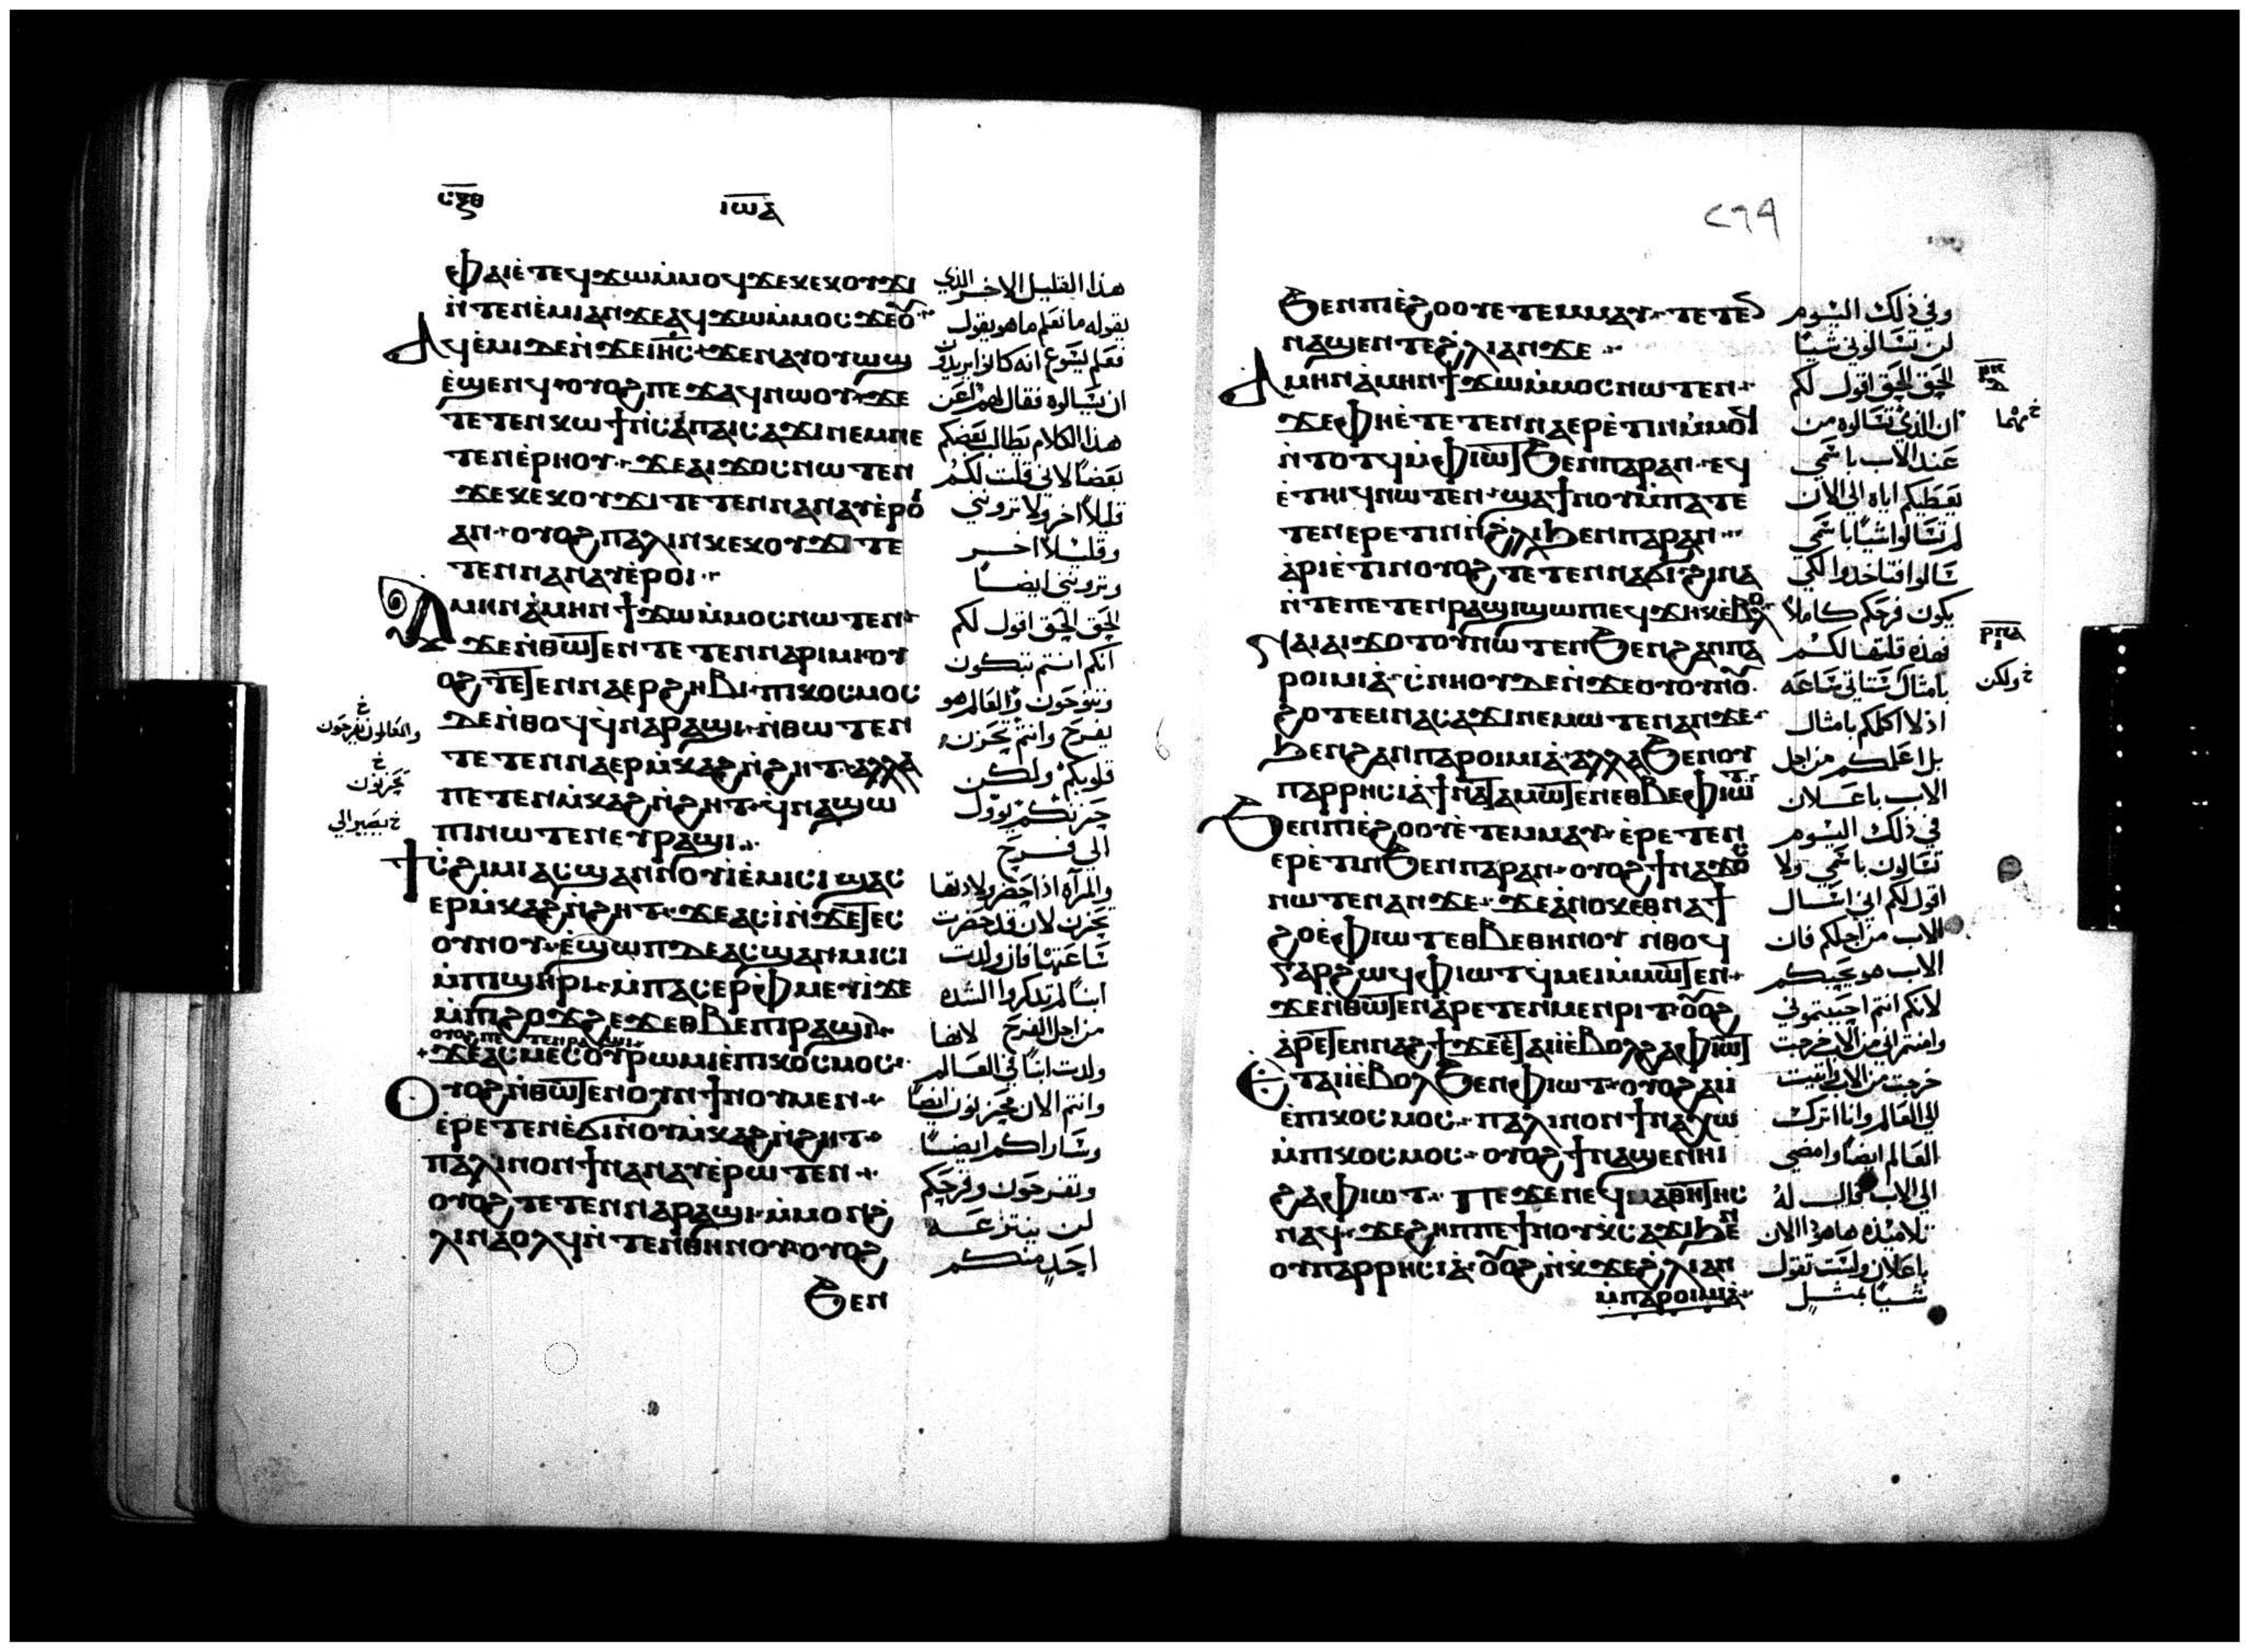 ⲥⲝⲑ ⲓⲱⲁ
ⲫⲁⲓ ⲉ̇ⲧⲉϥϫⲱ ⲙ̇ⲙⲟϥ ϫⲉ ⲕⲉⲕⲟⲩϫⲓ
ⲛ̇ⲧⲉⲛⲉ̇ⲙⲓ ⲁⲛ ϫⲉ ⲁϥϫⲱ ⲙ̇ⲙⲟⲥ ϫⲉ ⲟⲩ
ⲁϥⲉ̇ⲙⲓ ⲇⲉ ⲛ̇ϫⲉ ⲓⲏⲥ ϫⲉ ⲛⲁⲩⲟⲩⲱϣ
ⲉ̇ϣⲉⲛϥ ⲟⲩⲟϩ ⲡⲉϫⲁϥ ⲛⲱⲟⲩ ϫⲉ
ⲧⲉⲧⲉⲛⲕⲱϯ ⲛ̇ⲥⲁ ⲡⲁⲓⲥⲁϫⲓ ⲛⲉⲙ ⲛⲉ
ⲧⲉⲛⲉ̇ⲣⲏⲟⲩ ϫⲉ ⲁⲓϫⲟⲥ ⲛⲱⲧⲉⲛ
ϫⲉ ⲕⲉⲕⲟⲩϫⲓ ⲧⲉⲧⲉⲛⲛⲁⲛⲁⲩ ⲉ̇ⲣⲟⲓ
ⲁⲛ ⲟⲩⲟϩ ⲡⲁⲗⲓⲛ ⲕⲉⲕⲟⲩϫⲓ ⲧⲉ
ⲧⲉⲛⲛⲁⲛⲁⲩ ⲉ̇ⲣⲟⲓ
ⲁⲙⲏⲛ ⲁ̇ⲙⲏⲛ ϯϫⲱ ⲙ̇ⲙⲟⲥ ⲛⲱⲧⲉⲛ
ϫⲉ ⲛ̇ⲑⲱⲧⲉⲛ ⲧⲉⲧⲉⲛⲛⲁⲣⲓⲙⲓ ⲟⲩ
ⲟϩ ⲧⲉⲧⲉⲛⲛⲁⲉⲣϩⲏⲃⲓ ⲡⲓⲕⲟⲥⲙⲟⲥ
ⲇⲉ ⲛ̇ⲑⲟϥ ϥ̇ⲛⲁⲣⲁϣⲓ ⲛ̇ⲑⲱⲧⲉⲛ
ⲧⲉⲧⲉⲛⲛⲁⲉⲣⲙ̇ⲕⲁϩ ⲛ̇ϩⲏⲧ ⲁⲗⲗⲁ
ⲡⲉⲧⲉⲛⲙ̇ⲕⲁϩ ⲛ̇ϩⲏⲧ ϥ̇ⲛⲁϣⲱ
ⲡⲓ ⲛⲱⲧⲉⲛ ⲉⲩⲣⲁϣⲓ
ϯⲥ̇ϩⲓⲙⲓ ⲁⲥϣⲁⲛⲛⲟⲩⲓ ⲉ̇ⲙⲓⲥⲓ ϣⲁⲥ
ⲉⲣⲙ̇ⲕⲁϩ ⲛ̇ϩⲏⲧ ϫⲉ ⲁⲥⲓ̇ ⲛ̇ϫⲉ ⲧⲉⲥ
ⲟⲩⲛⲟⲩ ⲉ̇ϣⲱⲡ ⲇⲉ ⲁⲥϣⲁⲛⲙⲓⲥⲓ
ⲙ̇ⲡⲓϣⲏⲣⲓ ⲙ̇ⲡⲁⲥⲉⲣⲫⲙⲉⲩⲓ̇ ϫⲉ
ⲙ̇ⲡⲓϩⲟϫϩⲉϫ ⲉⲑⲃⲉ ⲡⲓⲣⲁϣⲓ
ϫⲉ ⲁⲥⲙⲉⲥ ⲟⲩⲣⲱⲙⲓ ⲉ̇ⲡⲓⲕⲟⲥⲙⲟⲥ
ⲟⲩⲟϩ ⲛ̇ⲑⲱⲧⲉⲛ ⲟⲩⲛ ϯⲛⲟⲩ ⲙⲉⲛ
ⲉ̇ⲣⲉⲧⲉⲛⲉ̇ϭⲓ ⲛ̇ⲟⲩⲙ̇ⲕⲁϩ ⲛ̇ϩⲏⲧ
ⲡⲁⲗⲓⲛ ⲟⲛ ϯⲛⲁⲛⲁⲩ ⲉ̇ⲣⲱⲧⲉⲛ
ⲟⲩⲟϩ ⲧⲉⲧⲉⲛⲛⲁⲣⲁϣⲓ ⲙ̇ⲙⲟⲛ ϩ
ⲗⲓ ⲛⲁⲟⲗϥ ⲛ̇ⲧⲉⲛ ⲑⲏⲛⲟⲩ ⲟⲩⲟϩ
ϧⲉⲛ
هذا القليل الاخر الذي
يقوله ما نعلم ما هو يقول
فعلم يسوع انه كانوا يريدون
ان يسالوه فقال لهم اعن
هذا الكلام يطالب بعضكم
بعضًا لاني قلت لكم
قليلاً اخر ولا تروني
وقليلاً اخر
وتروني ايضًا
الحق الحق اقول لكم
انكم انتم تبكون
وتنوحون والعالم هو
يفرح وانتم تحزن
قلوبكم ولكن
حزنكم يؤول
الى فرح
والمرآه اذا حضر ولادتها
تحزن لان قد حضرت
ساعتها فان ولدت
ابنًا لم تذكر الشده
من اجل الفرح لانها
ولدت ابنًا في العالم
وانتم الان تحزنون ايضًا
وساراكم ايضًا
وتفرحون وفرحكم
لن ينتزعه
احد منكم
خ
خ
تحزنون
خ يصير الى
٢٦٩
ϧⲉⲛ ⲡⲓⲉ̇ϩⲟⲟⲩ ⲉⲧⲉⲙⲙⲁⲩ ⲧⲉⲧⲉⲛ
ⲛⲁϣⲉⲛⲧ ⲉϩⲗⲓ ⲁⲛ ϫⲉ
ⲁⲙⲏⲛ ⲁ̇ⲙⲏⲛ ϯϫⲱ ⲙ̇ⲙⲟⲥ ⲛⲱⲧⲉⲛ
ϫⲉ ⲫⲏ ⲉ̇ⲧⲉⲧⲉⲛⲛⲁⲉⲣⲉ̇ⲧⲓⲛ ⲙ̇ⲙⲟϥ
ⲛ̇ⲧⲟⲧϥ ⲙ̇ⲫⲓⲱⲧ ϧⲉⲛ ⲡⲁⲣⲁⲛ ⲉϥ
ⲉ̇ⲧⲏⲓϥ ⲛⲱⲧⲉⲛ ϣⲁ ϯⲛⲟⲩ ⲙ̇ⲡⲁⲧⲉ
ⲧⲉⲛⲉⲣⲉⲧⲓⲛ ⲛ̇ϩⲗⲓ ϧⲉⲛ ⲡⲁⲣⲁⲛ
ⲁ̇ⲣⲓⲉ̇ⲧⲓⲛ ⲟⲩⲟϩ ⲧⲉⲧⲉⲛⲛⲁϭⲓ ϩⲓⲛⲁ
ⲛ̇ⲧⲉ ⲡⲉⲧⲉⲛⲣⲁϣⲓ ϣⲱⲡⲉϥϫⲏⲕ ⲉ̇ⲃⲟⲗ
ⲛⲁⲓ ⲁⲓϫⲟⲧⲟⲩ ⲛⲱⲧⲉⲛ ϧⲉⲛ ϩⲁⲛⲡⲁ
ⲣⲟⲓⲙⲓⲁ̇ ⲥ̇ⲛⲏⲟⲩ ⲇⲉ ⲛ̇ϫⲉ ⲟⲩⲟⲩⲛⲟⲩ
ϩⲟⲧⲉ ⲉⲓⲛⲁⲥⲁϫⲓ ⲛⲉⲙⲱⲧⲉⲛ ⲁⲛ ϫⲉ
ϧⲉⲛ ϩⲁⲛⲡⲁⲣⲟⲓⲙⲓⲁ̇ ⲁⲗⲗⲁ ϧⲉⲛ ⲟⲩ
ⲡⲁⲣⲣⲏⲥⲓⲁ̇ ϯⲛⲁⲧⲁⲙⲱⲧⲉⲛ ⲉⲑⲃⲉ ⲫⲓⲱⲧ
ϧⲉⲛ ⲡⲓⲉ̇ϩⲟⲟⲩ ⲉ̇ⲧⲉⲙⲙⲁⲩ ⲉ̇ⲣⲉⲧⲉⲛ
ⲉⲣⲉ̇ⲧⲓⲛ ϧⲉⲛ ⲡⲁⲣⲁⲛ ⲟⲩⲟϩ ϯⲛⲁϫⲟⲥ
ⲛⲱⲧⲉⲛ ⲁⲛ ϫⲉ ϫⲉ ⲁ̇ⲛⲟⲕ ⲉⲑⲛⲁϯ
ϩⲟ ⲉ̇ⲫⲓⲱⲧ ⲉⲑⲃⲉ ⲑⲏⲛⲟⲩ ⲛ̇ⲑⲟϥ
ⲅⲁⲣ ϩⲱϥ ⲫⲓⲱⲧ ϥ̇ⲙⲉⲓ ⲙ̇ⲙⲱⲧⲉⲛ
ϫⲉ ⲛ̇ⲑⲱⲧⲉⲛ ⲁ̇ⲣⲉⲧⲉⲛⲙⲉⲛⲣⲓⲧ ⲟⲩⲟϩ
ⲁ̇ⲣⲉⲧⲉⲛⲛⲁϩϯ ϫⲉ ⲉ̇ⲧⲁⲓⲓ̇ ⲉ̇ⲃⲟⲗ ϩⲁ ⲫⲓⲱⲧ
ⲉⲧⲁⲓⲓ̇ ⲉ̇ⲃⲟⲗ ϧⲉⲛ ⲫⲓⲱⲧ ⲟⲩⲟϩ ⲁⲓⲓ̇
ⲉ̇ⲡⲓⲕⲟⲥⲙⲟⲥ ⲡⲁⲗⲓⲛ ⲟⲛ ϯⲛⲁⲭⲱ
ⲙ̇ⲡⲓⲕⲟⲥⲙⲟⲥ ⲟⲩⲟϩ ϯⲛⲁϣⲉⲛⲏⲓ
ϩⲁ ⲫⲓⲱⲧ ⲡⲉϫⲉ ⲛⲉϥⲙⲁⲑⲏⲧⲏⲥ
ⲛⲁϥ ϫⲉ ϩⲏⲡⲡⲉ ϯⲛⲟⲩ ⲕ̇ⲥⲁϫⲓ ϧⲉⲛ
ⲟⲩⲡⲁⲣⲣⲏⲥⲓⲁ̇ ⲟⲩⲟϩ ⲛ̇ⲕ̇ϫⲉ ϩ̇ⲗⲓ ⲁⲛ
ⲙ̇ⲡⲁⲣⲟⲓⲙⲓⲁ̇
وفي ذلك اليوم
لن تسالوني شيًا
الحق الحق اقول لكم
ان الذي تسالوه من
عند الاب باسمي
يعطيكم اياه الى الان
لم تسالوا شيًا باسمي
سالوا فتاخذوا لكي
يكون فرحكم كاملاً
فهذه قلتها لكم
بامثال ستاتي ساعه
اذ لا اكلمكم بامثال
بل اعلمكم من اجل
الاب باعلان
في ذلك اليوم
تسالون باسمي ولا
اقول لكم اني اسال
الاب من اجلكم فان
الاب هو يحبكم
لانكم انتم احببتموني
وامنتم اني من الاب خرجت
خرجت من الاب واتيت
الى العالم وانا اترك
العالم ايضًا وامضي
الى الاب قال له
تلاميذه ها هوذا الان
باعلان ولست تقول
شيًا بمثلٍ
ⲣⲡ
خ مهما
ⲣⲡⲁ
خ ولكن